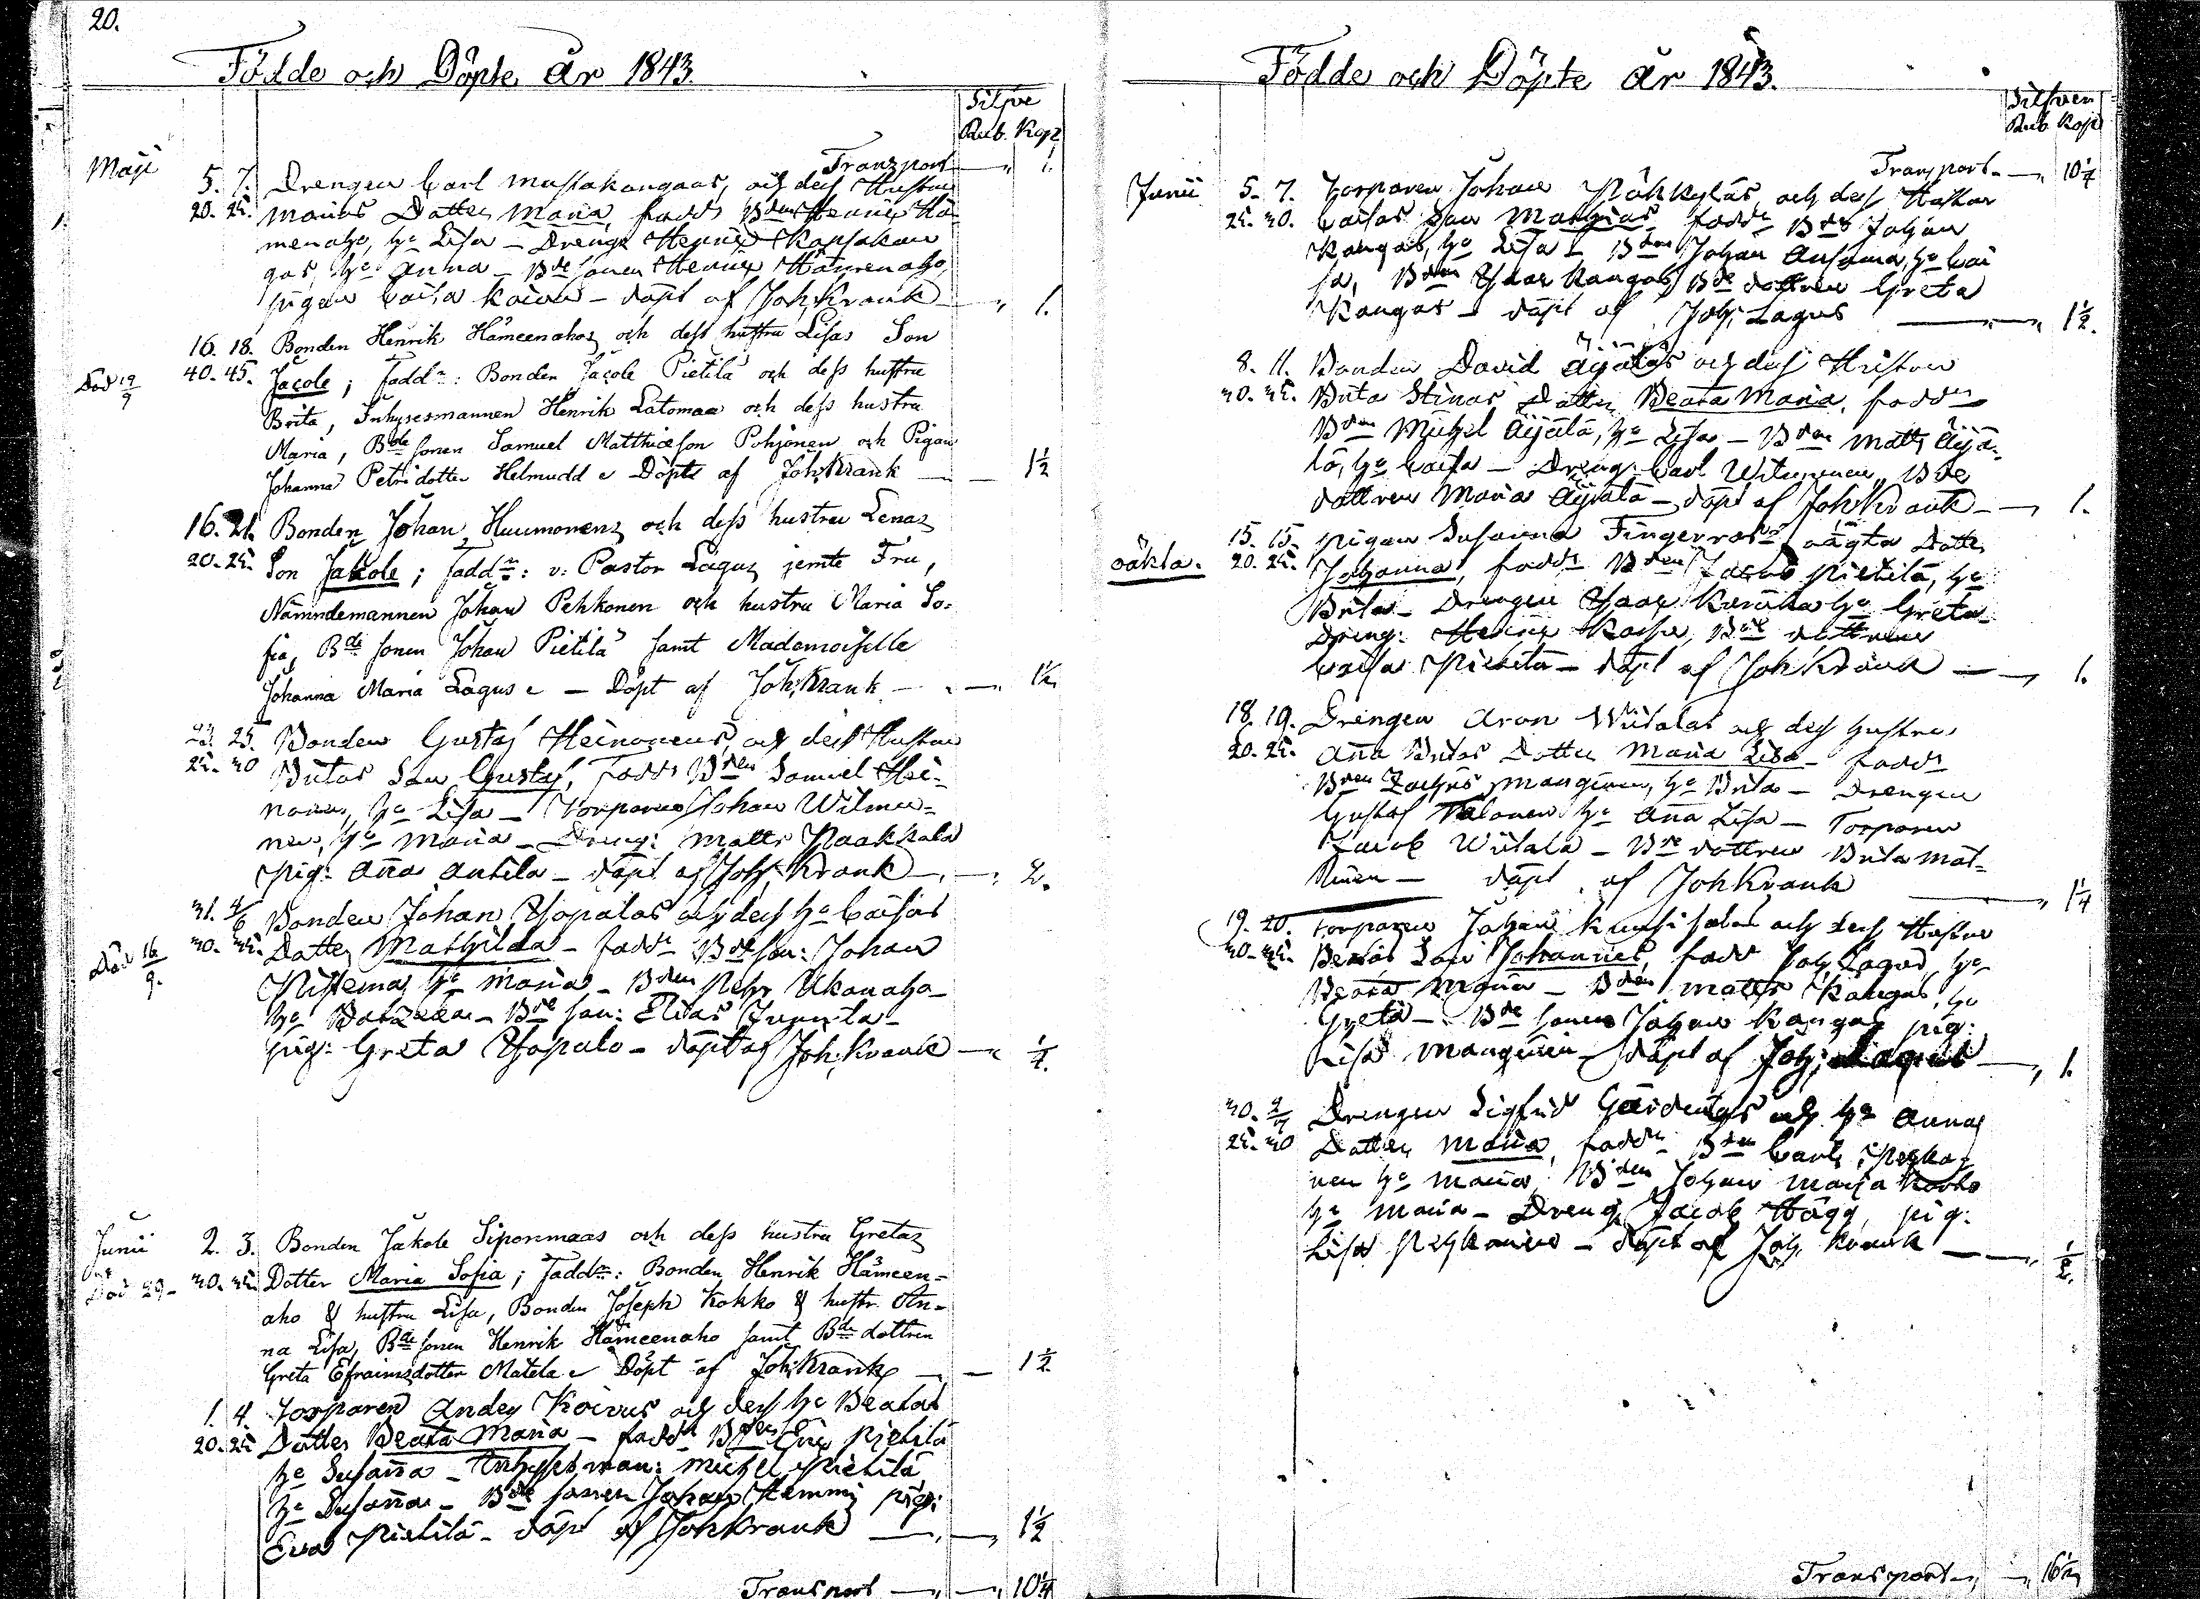 20.
Födde och Döpte år 1843.
Silfve
Rub. Kop
Transport — „ 1.
Maji 5. 7. Drengen Carl Mustakangas, och dess Hustru
20. 25. Marias Dotter Maria, fadd. Bden Henric Hä
menaho, ha Lisa — Drengn Henric Kapsakan
gas, ha Anna — Bde sonen Henric Hämenaho,
pigan Caisa — döpt af Joh: Krank — „ 1.
16. 18. Bonden Henrik Hämeenahos och dess hustru Lisas Son
Död 19/9 40. 45. Jacob; Faddr: Bonden Jacob Pietilä och dess hustru
Brita, Inhysesmannen Henrik Latomaa och dess hustru
Maria, Bde sonen Samuel Matthiesson Pohjonen och Pigan
Johanna Petrsdotter Helmudd Döpte af Joh: Krank — 1½
16. 21. Bonden Johan Huumonens och dess hustru Lenas
20. 25. Son Jakob; Faddn: v: Pastor Lagus jemte Fru,
Nämndemannen Johan Pehkonen och hustru Maria So-
fia, Bde sonen Johan Pietilä samt Mademoiselle
Johanna Maria Lagus — Döpt af Joh: Krank — „ 1½
23. 25. Bonden Gustaf Heinonens, och dess Hustru
25. 30 Britas Son Gustaf, Faddr Bden Samuel Hei-
nonen, ha Lisa — Torparen Johan Witmu-
nen, ha Maria — Dreng: Matts Paakkala
Pig: Aña Antila — döpt af Joh: Krank — „ 2.
31. 4/6 Bonden Johan Yopalas och dess ha Caisas
Död 16/9. 30. 35. Dotter Mathilda — faddr Bde son: Johan
ha Maria — Bden Pehr Ukonaho —
ha — Bde son: Elias
pig: Greta Yopala — döpt af Joh: Krank — „ ½.
Junii 2. 3. Bonden Jakob Siponmaas och dess hustru Gretas
Död 29 — 30. 35 Dotter Maria Sofia; Faddn: Bonden Henrik Hämeen-
aho & hustru Lisa, Bonden Joseph Kokko & hustr. An-
na Lisa, Bde sonen Henrik Hämeenaho samt Bde dottren
Greta Efraimsdotter Matela Döpt af Joh: Krank — 1½
1. 4. Torparen Anders Koivus och dess ha Beatas
20. 25 Dotter Beata Maria — faddr Bden Eric Pietilä
ha Susaña — Inhyses man: Michel Pietilä
ha Susaña — Bde sonen Johan Hemmi pig:
Eva Pietilä — döpt af Joh: Krank — „ 1½
Transport — „ 10¼
Födde och Döpte år 1843.
Silfver
Rub. Kop
Transport — „ 10¼
Junii 5. 7. Torparen Johan Pähkyläs, och dess Hustru
25. 30. Caisas Son Mathias, faddr Bden Johan
Kangas, ha Lisa — Bden Johan Ansama, ha Cai
sa, Bden Isaac Kangas, Bde dottren Greta
Kangas — döpt af Joh: Lagus — „ 1½.
8. 11. Bonden David Äijäläs och dess Hustru
30. 35. Brita Stinas Dotter Beata Maria, faddr
Bden Michel Äijälä, ha Lisa — Bden Matts Äijä-
lä, ha Caisa — Dreng: Carl Witmunen, Bde
dottren Maria Äijälä — döpt af Joh: Krank — „ 1.
15. 15. Pigan Susanna Fingerroos oägta Dotter
oäkta. 20. 25. Johanna, faddr Bden Jacob Pietilä, ha
Brita — Drengen Isaac ha Greta
Dreng: Henric Bde dottren
Caisa Pietilä — döpt af Joh: Krank — „ 1.
18. 19. Drengen Aron Wiitalas och dess Hustru
20. 25. Aña Britas Dotter Maria Lisa — faddr
Bden Zachris Manginen, ha Brita — Drengen
Gustaf Talonen ha Aña Lisa — Torparen
Jacob Wiitala — Bde dottren Brita Mat-
tinen — döpt af Joh: Krank — „ 1¼
19. 20. Torparen Johan och dess Hustru
30. 35. Son Johannes, faddr Joh: Lagus, ha
Beata Maria — Bden Matts Kangas, ha
Greta — Bde sonen Johan Kangas pig:
Lisa Manginen — döpt af Joh: Lagus — „ 1.
30. 2/7 Drengen Sigfrid och ha Annas
25. 30 Dotter Maria, faddr Bden Carl Pehko-
nen ha Maria, Bden Johan Marja Kovko
ha Maria — Dreng Jacob Hägg, pig:
Lisa Pehkonen — döpt af Joh: Krank — „ ½.
Transport „ 16½